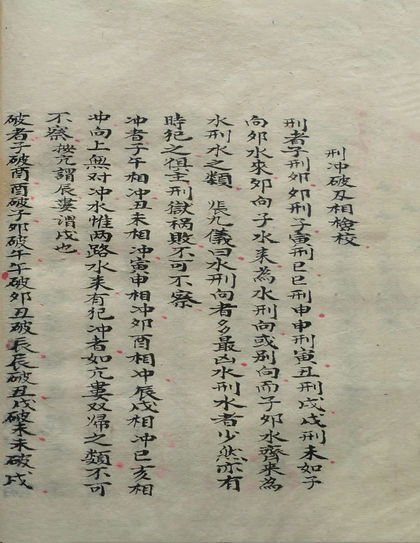 刑冲破及相檢校
刑者子刑卯卯刑子寅刑巳巳刑申申刑寅丑刑戌戌刑未如子
向卯水來卯向子水来為水刑向或别向而子卯水齊来為
水刑水之類 張九儀曰水刑向者多最凶水刑水者少然亦有
時犯之俱主刑獄禍敗不可不察
冲者子午相冲丑未相冲寅申相冲卯酉相冲辰戌相冲巳亥相
冲向上無对冲水惟两路水来有犯冲者如亢婁双帰之類不可
不察按亢謂辰婁謂戌也
破者子破酉酉破子卯破午午破卯丑破辰辰破丑戌破未未破戌